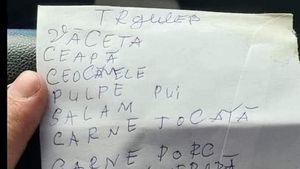 VĂCETA
CEAPĂ
CEOCANELE
PULPE PUI
SALAM
CARNE TOCATĂ
CARNE PORC